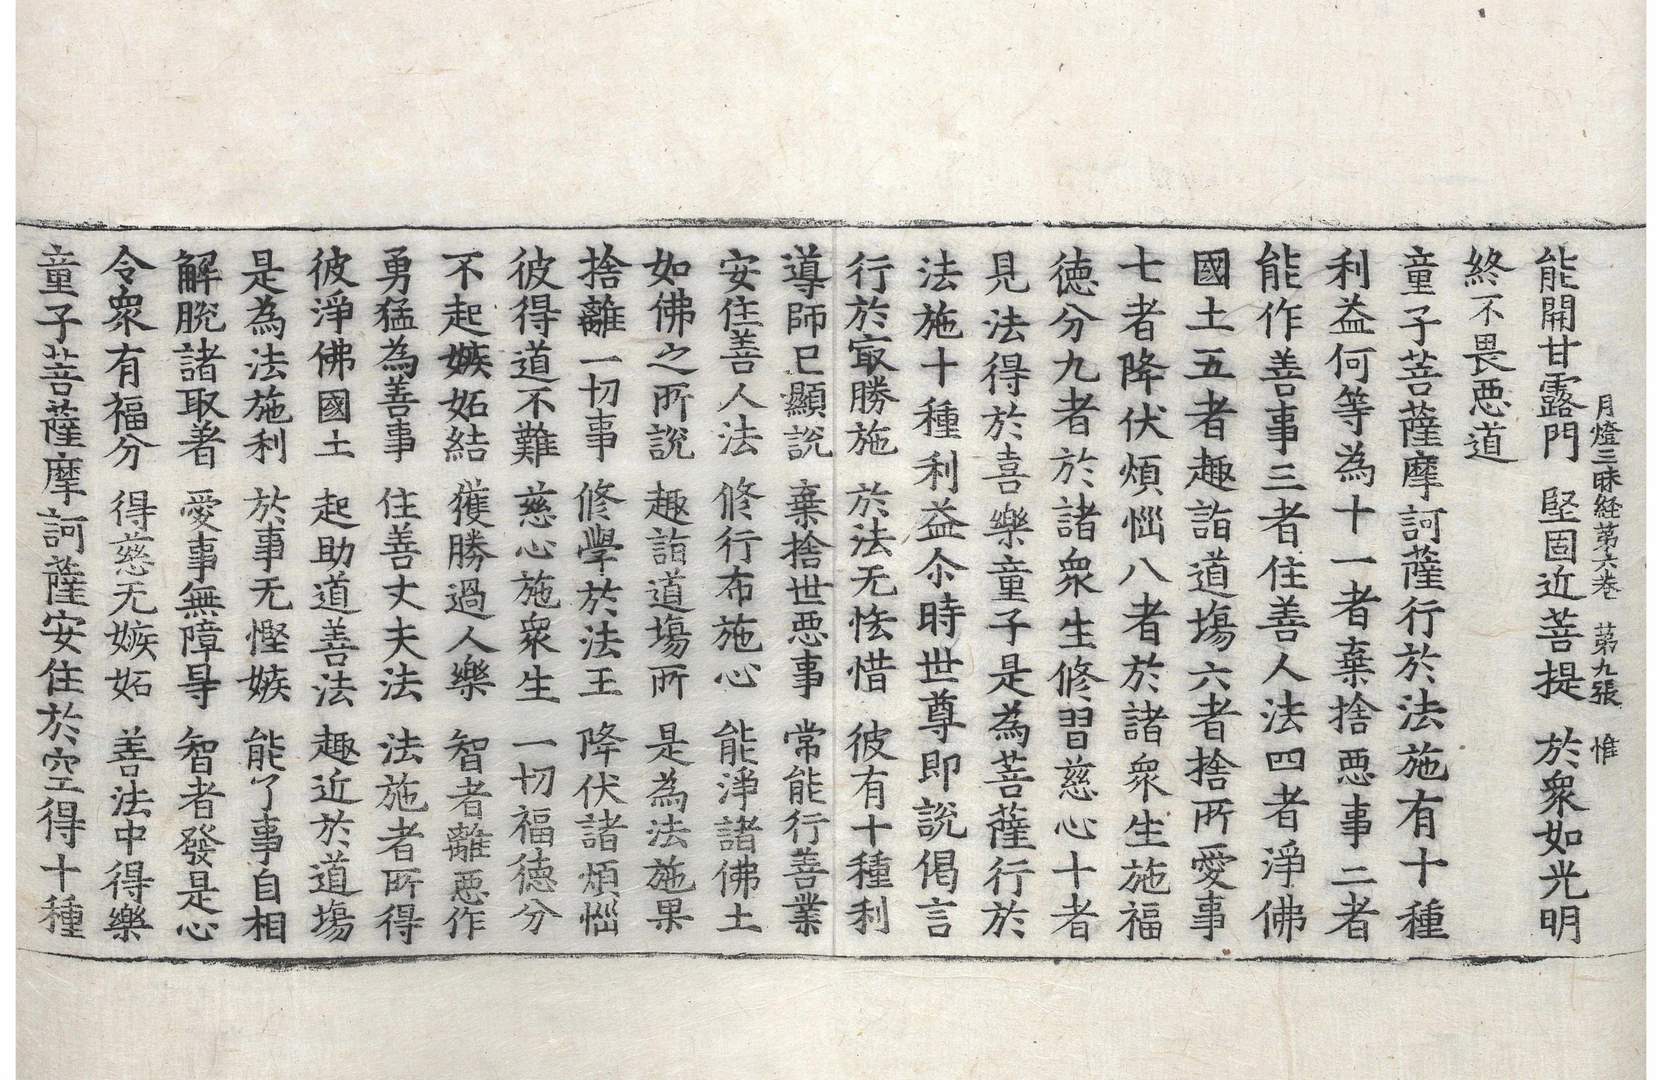 月燈三昧経苐六巻　苐九張　惟
能開甘露門　堅固近菩提　於衆如光明
終不畏悪道
童子菩薩摩訶薩行於法施有十種
利益何等為十一者棄捨悪事二者
能作善事三者住善人法四者淨佛
國土五者趣詣道塲六者捨所愛事
七者降伏煩惱八者於諸衆生施福
徳分九者於諸衆生修習慈心十者
見法得於喜樂童子是為菩薩行於
法施十種利益尒時世尊即說偈言
行於㝡勝施　於法无悋惜　彼有十種利
導師已顯說　棄捨世悪事　常能行善業
安住善人法　修行布施心　能淨諸佛土
如佛之所說　趣詣道塲所　是為法施果
捨離一切事　修學於法王　降伏諸煩惱
彼得道不難　慈心施衆生　一切福徳分
不起嫉妬結　獲勝過人樂　智者離悪作
勇猛為善事　住善丈夫法　法施者所得
彼淨佛國土　起助道善法　趣近於道塲
是為法施利　於事无慳嫉　能了事自相
解脫諸取著　愛事無障㝵　智者發是心
令衆有福分　得慈无嫉妬　善法中得樂
童子菩薩摩訶薩安住於空得十種